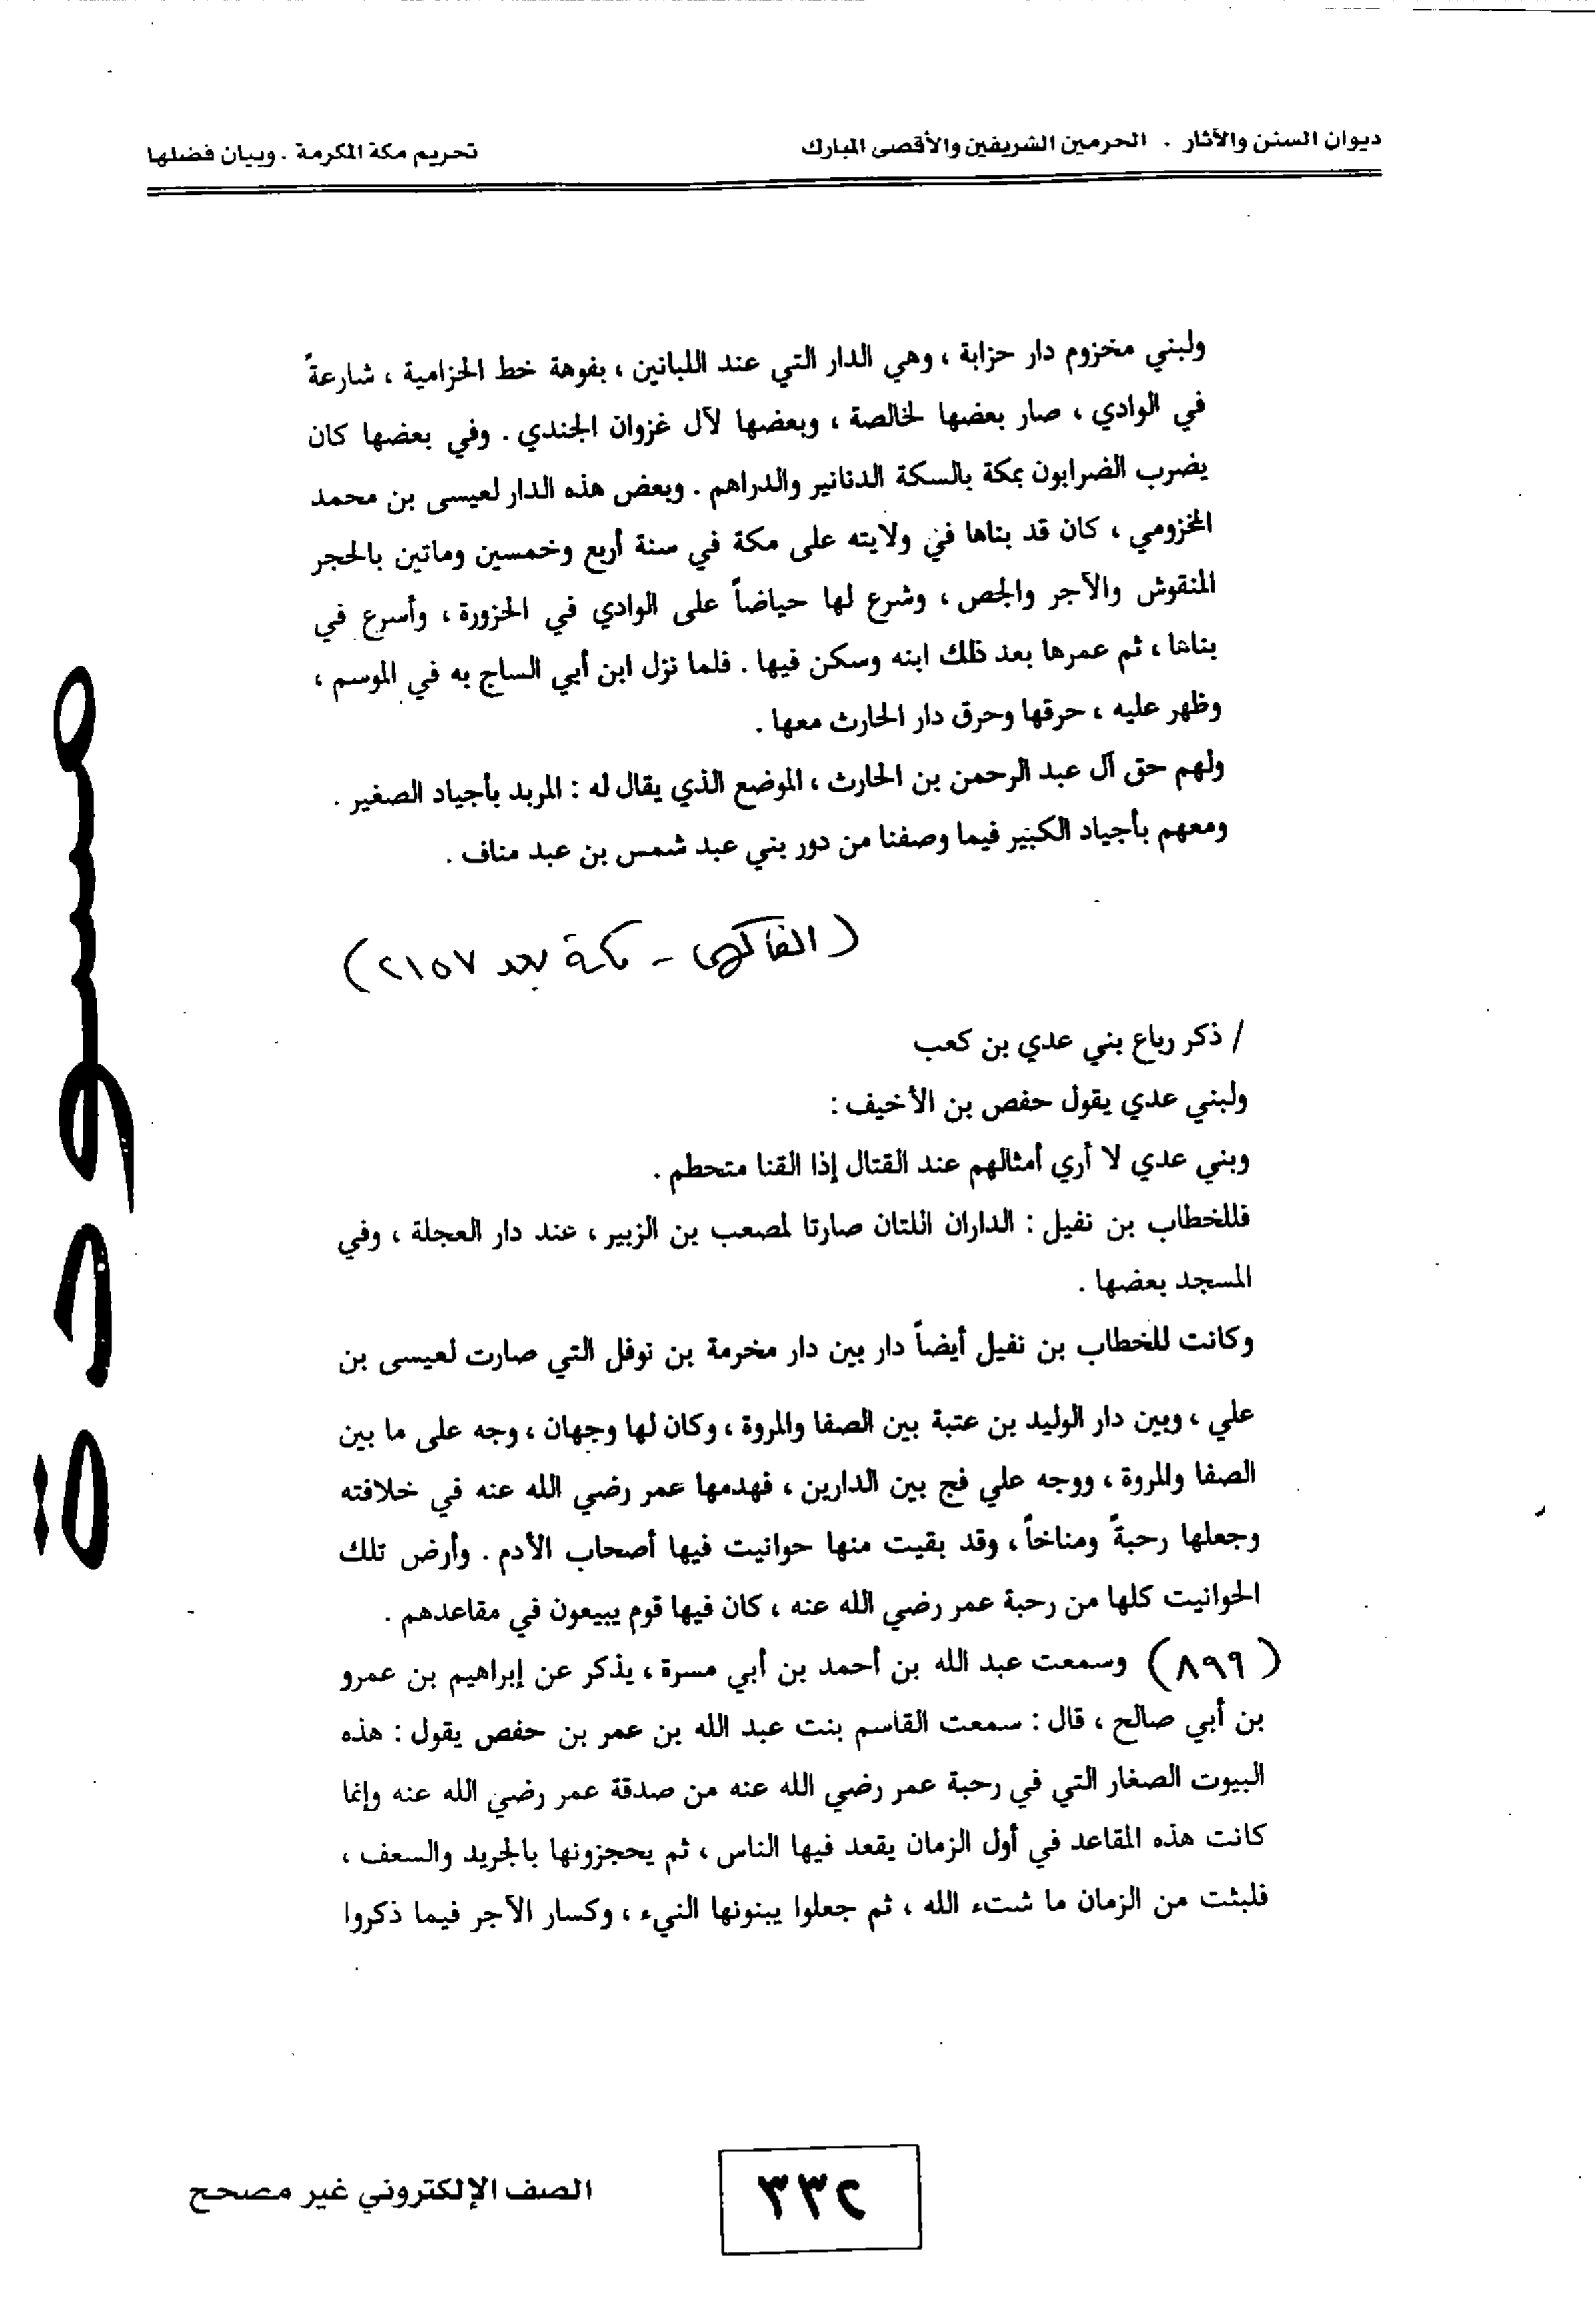 ديوان السنن والآثار . الحرمين الشريفين والأقصى المبارك
تحريم مكة المكرمة . وبيان فضلها
ولبني مخزوم دار حزابة ، وهي الدار التي عند اللبانين ، بفوهة خط الحزامية ، شارعةً
في الوادي ، صار بعضها لخالصة ، وبعضها لآل غزوان الجندي . وفي بعضها كان
يضرب الضرابون بمكة بالسكة الدنانير والدراهم . وبعض هذه الدار لعيسى بن محمد
المخزومي ، كان قد بناها في ولايته على مكة في سنة أربع وخمسين وماتين بالحجر
المنقوش والآجر والجص ، وشرع لها حياضاً على الوادي في الحزورة ، وأسرع في
بناها ، ثم عمرها بعد ذلك ابنه وسكن فيها . فلما نزل ابن أبي الساج به في الموسم ،
وظهر عليه ، حرقها وحرق دار الحارث معها .
ولهم حق آل عبد الرحمن بن الحارث ، الموضع الذي يقال له : المربد بأجياد الصغير .
ومعهم بأجياد الكبير فيما وصفنا من دور بني عبد شمس بن عبد مناف .
( الفاكهي - مكة بعد ٢١٥٧ )
/ ذكر رباع بني عدي بن كعب
ولبني عدي يقول حفص بن الأخيف :
وبني عدي لا أري أمثالهم عند القتال إذا القنا متحطم .
فللخطاب بن نفيل : الداران اللتان صارتا لمصعب بن الزبير ، عند دار العجلة ، وفي
المسجد بعضها .
وكانت للخطاب بن نفيل أيضاً دار بين دار مخرمة بن نوفل التي صارت لعيسى بن
علي ، وبين دار الوليد بن عتبة بين الصفا والمروة ، وكان لها وجهان ، وجه على ما بين
الصفا والمروة ، ووجه علي فج بين الدارين ، فهدمها عمر رضي الله عنه في خلافته
وجعلها رحبةً ومناخاً ، وقد بقيت منها حوانيت فيها أصحاب الأدم . وأرض تلك
الحوانيت كلها من رحبة عمر رضي الله عنه ، كان فيها قوم يبيعون في مقاعدهم .
( ٨٩٩ ) وسمعت عبد الله بن أحمد بن أبي مسرة ، يذكر عن إبراهيم بن عمرو
بن أبي صالح ، قال : سمعت القاسم بنت عبد الله بن عمر بن حفص يقول : هذه
البيوت الصغار التي في رحبة عمر رضي الله عنه من صدقة عمر رضي الله عنه وإنما
كانت هذه المقاعد في أول الزمان يقعد فيها الناس ، ثم يحجزونها بالجريد والسعف ،
فلبثت من الزمان ما شتء الله ، ثم جعلوا يبنونها النيء ، وكسار الآجر فيما ذكروا
مسودة
٣٣٢
الصف الإلكتروني غير مصحح